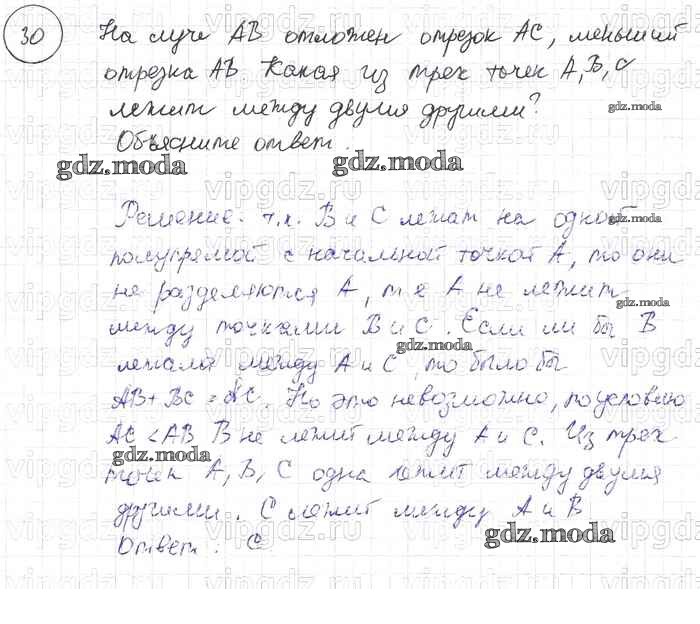 30 На луче AB отложен отрезок AC, меньший
отрезка AB. Какая из трех точек A, B, C
лежит между двумя другими?
Объясните ответ.
Решение. т.к. B и C лежат на одной
полупрямой с начальной точкой A, то они
не разделяются A, т.е A не лежит
между точками B и C. Если ли бы B
лежала между A и C, то было бы
AB + BC = AC. Но это невозможно, по условию
AC < AB B не лежит между A и C. Из трех
точек A, B, C одна лежит между двумя
другими. C лежит между A и B
Ответ: C
gdz.moda
vipgdz.ru